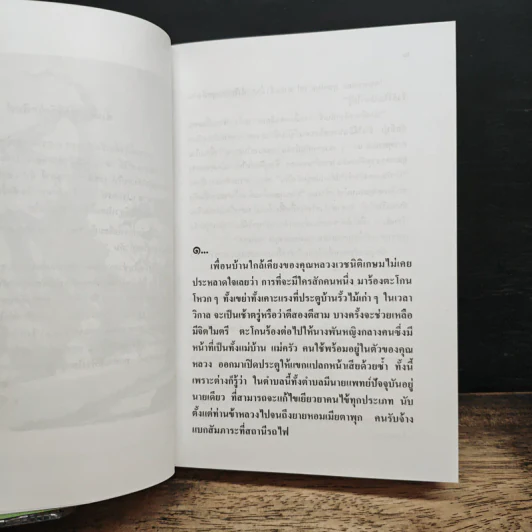 ๑...
เพื่อนบ้านใกล้เคียงของคุณหลวงเวชนิติเกษมไม่เคย
ประหลาดใจเลยว่า การที่จะมีใครสักคนหนึ่ง มาร้องตะโกน
โหวกๆ ทั้งเขย่าทั้งเคาะแรงที่ประตูบ้านรั้วไม้เก่าๆ ในเวลา
วิกาล จะเป็นเช้าตรู่หรือว่าตีสองตีสาม บางครั้งจะช่วยเหลือ
มีจิตไมตรี ตะโกนร้องต่อไปให้นางพันหญิงกลางคนซึ่งมี
หน้าที่เป็นทั้งแม่บ้าน แม่ครัว คนใช้พร้อมอยู่ในตัวของคุณ
หลวง ออกมาเปิดประตูให้แขกแปลกหน้าเสียด้วยซ้ำ ทั้งนี้
เพราะต่างก็รู้ว่า ในตำบลนี้ทั้งตำบลมีนายแพทย์ปัจจุบันอยู่
นายเดียว ที่สามารถจะแก้ไขเยียวยาคนไข้ทุกประเภท นับ
ตั้งแต่ท่านข้าหลวงไปจนถึงยายหอมเมียตาพุก คนรับจ้าง
แบกสัมภาระที่สถานีรถไฟ